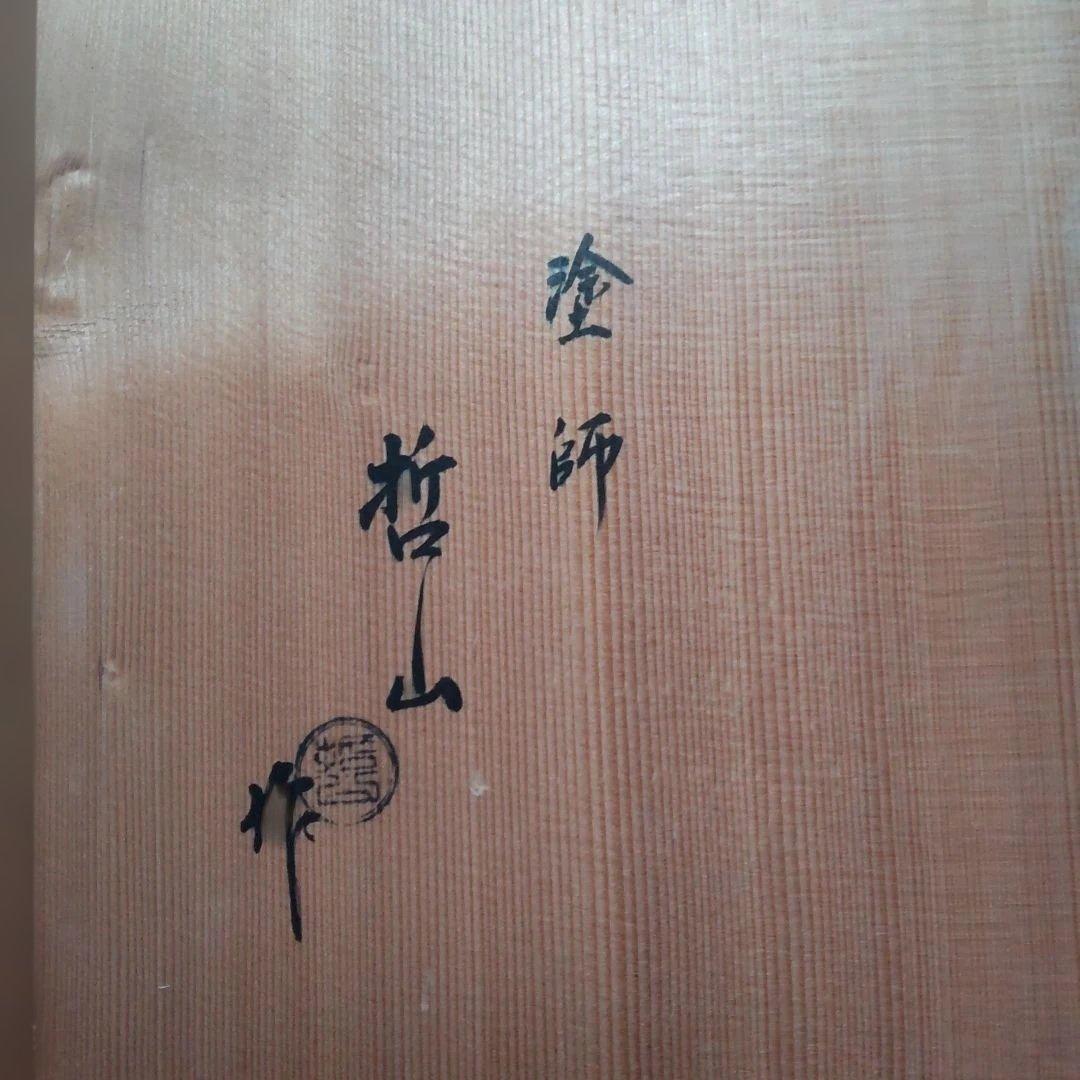 塗師
哲山
作